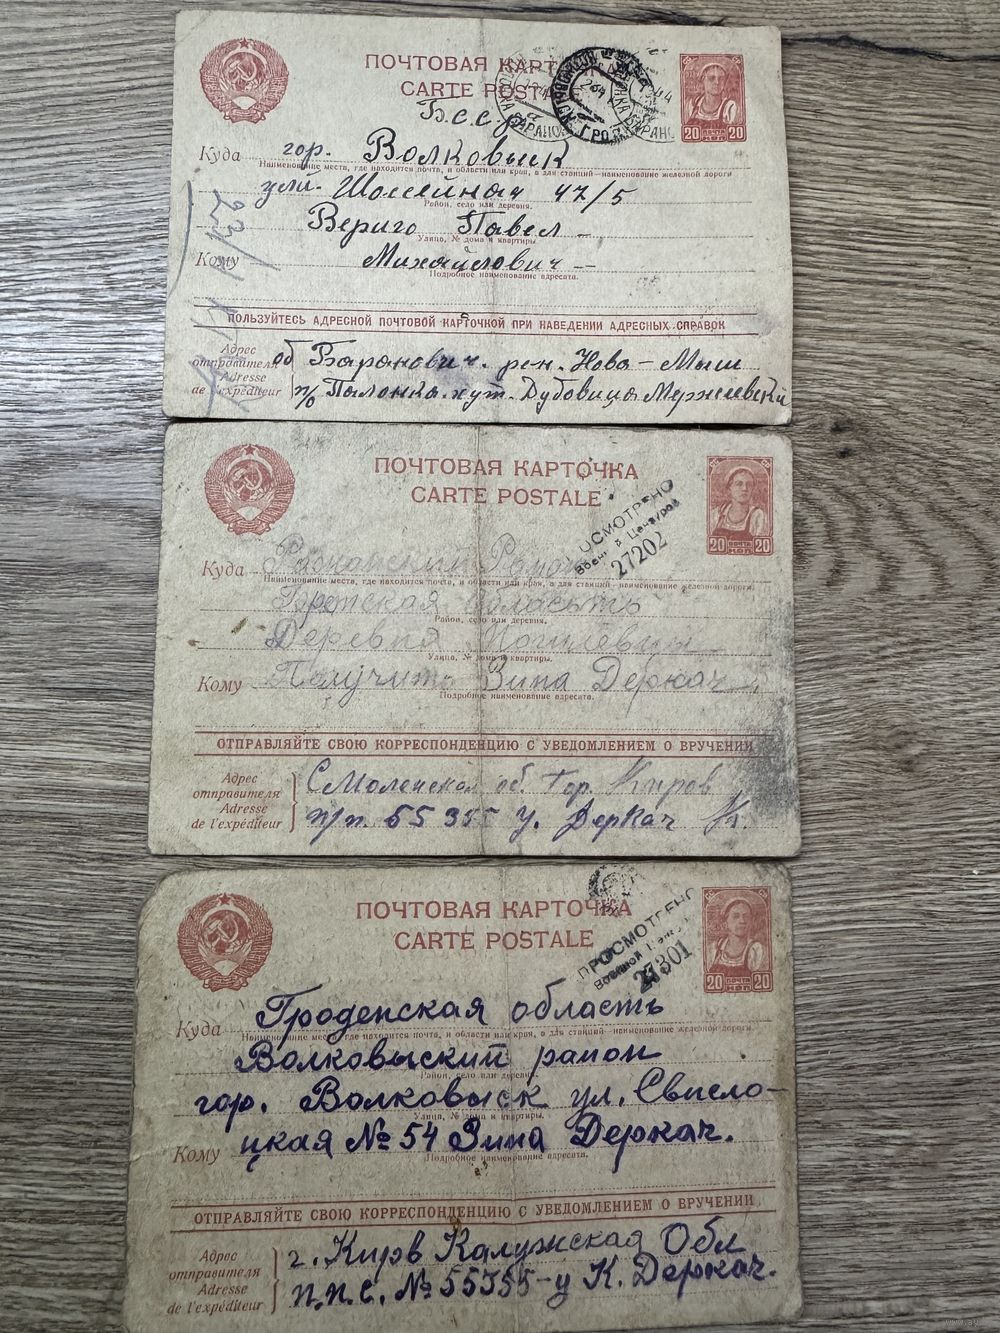 ПОЧТОВАЯ КАРТ
CARTE POST
Б.с.с.р.
Куда гор. Волковыск
Наименование места, где находится почта, и области или края, а для станций—наименование железной дороги
ули. Шоссейная 47/5
Район, село или деревня.
Вериго Павел
Улица, № дома и квартиры.
Кому Михайлович
Подробное наименование адресата.
ПОЛЬЗУЙТЕСЬ АДРЕСНОЙ ПОЧТОВОЙ КАРТОЧКОЙ ПРИ НАВЕДЕНИИ АДРЕСНЫХ СПРАВОК
Адрес отправителя
Adresse de l'expéditeur
об Баранович. рен. Нова-Мыш
п/о Палонка. хут. Дубовица
20 ПОЧТА КОП. 20
ПОЧТОВАЯ КАРТОЧКА
CARTE POSTALE
ОСМОТРЕНО
27202
20 ПОЧТА КОП. 20
Куда
Наименование места, где находится почта, и области или края, а для станций—наименование железной дороги.
область
Район, село или деревня.
Деревня
Улица, № дома и квартиры.
Кому Получить Зина Деркач
Подробное наименование адресата.
ОТПРАВЛЯЙТЕ СВОЮ КОРРЕСПОНДЕНЦИЮ С УВЕДОМЛЕНИЕМ О ВРУЧЕНИИ
Адрес отправителя
Adresse de l'expéditeur
Смоленская об. гор. Киров
п/п. 55355 у. Деркач К.
ПОЧТОВАЯ КАРТОЧКА
CARTE POSTALE
ПРОСМОТРЕНО
Военной
27301
20 ПОЧТА КОП. 20
Куда Гроденская область
Наименование места, где находится почта, и области или края, а для станций—наименование железной дороги.
Волковыский район
Район, село или деревня.
гор. Волковыск ул. Свисло-
Улица, № дома и квартиры.
Кому цкая № 54 Зина Деркач.
Подробное наименование адресата.
ОТПРАВЛЯЙТЕ СВОЮ КОРРЕСПОНДЕНЦИЮ С УВЕДОМЛЕНИЕМ О ВРУЧЕНИИ
Адрес отправителя
Adresse de l'expéditeur
г. Киров Калужская Обл
п.п.с. № 55355-у К. Деркач.